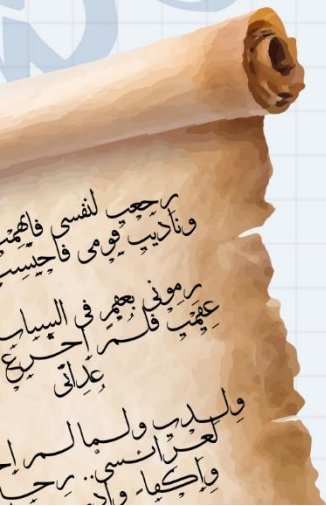 رجعت لنفسي فاتهمت
وناديت قومي فاحتسبت
رموني بعقم في الشباب
عقمت فلم أجزع
عداتي
ولدت ولما لم
لعرائسي.. رجا
وأكفاء وأد